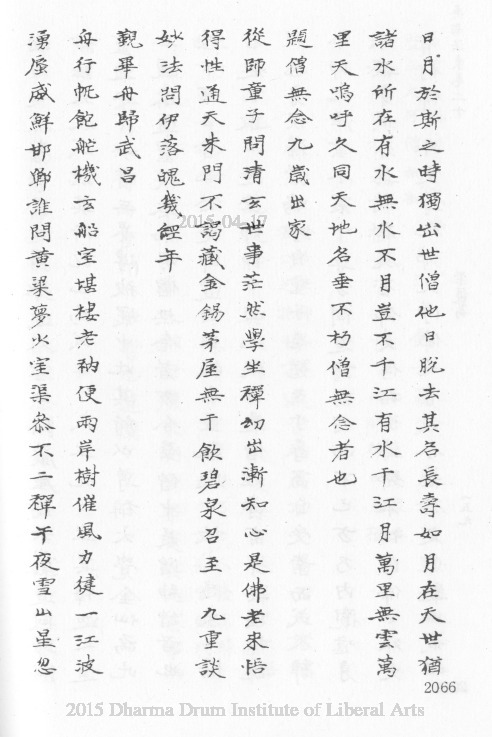 日月於斯之時獨出世僧他日脫去其名長壽如月在天世猶
諸水所在有水無水不月豈不千江有水千江月萬里無雲萬
里天嗚呼久同天地名垂不朽僧無念者也
題僧無念九歲出家
從師童子問清玄世事茫然學坐禪幼出漸知心是佛老來悟
得性通天朱門不謁藏金錫茅屋無干飲碧泉召至九重談
妙法問伊落魄幾經年
覲畢舟歸武昌
舟行帆飽舵機玄船室堪棲老衲便兩岸樹催風力徤一江波
湧蜃威鮮邯鄲誰問黃粱夢火室渠叅不二禪午夜雪山星忽
2015-04-17
2066
2015 Dharma Drum Institute of Liberal Arts